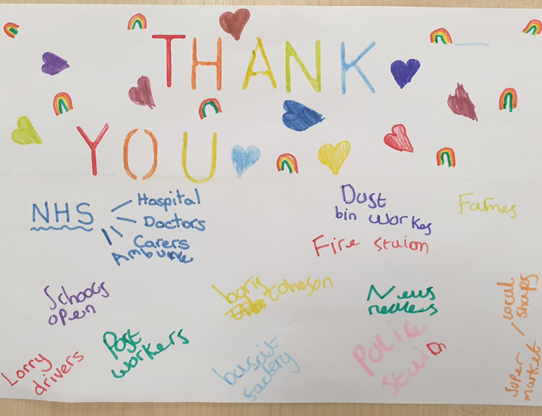 THANK
YOU
NHS
Hospital
Doctors
Carers
Ambulnce
Dust
bin workes
Farmes
Fire stuion
Schools
open
boris Johnson
News
readers
Super / local
market shops
Lorry
drivers
Post
workers
Police
stuion